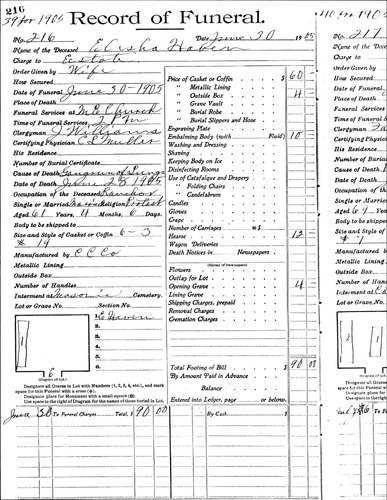 216
39 for 1905
Record of Funeral.
No. 216 Date June 30 1905
Name of the Deceased Elisha Haven
Charge to Estate
Order Given by Wife
Date of Funeral June 30 - 1905
Place of Death
Funeral Services at M.E. Church
Time of Funeral Services 2 P.M.
Clergyman J Williams
Certifying Physician
His Residence
Number of Burial Certificate
Cause of Death Gangrene of Lungs
Date of Death June 28 1905
Occupation of the Deceased Rancher
Single or Married Religion Protest
Aged 61 Years, 4 Months, 6 Days
Body to be shipped to
Size and Style of Casket or Coffin 6-3
# 19
Manufactured by C C Co
Metallic Lining
Outside Box
Number of Handles
Interment at Masonic Cemetery.
Lot or Grave No. Section No.
1. E Haven
2.
3.
4.
5.
6.
1
6
(Diagram of Lot.)
Designate all Graves in Lot with Numbers (1, 2, 3, 4, etc.), and mark
space for this Funeral with a cross
Designate place for Monument with a small square
Use space to the right of Diagram for the names of those buried in Lot.
Price of Casket or Coffin $ 60
" Metallic Lining
" Outside Box 4
" Grave Vault
" Burial Robe
" Burial Slippers and Hose
Engraving Plate
Embalming Body (with Fluid) 10
Washing and Dressing
Shaving
Keeping Body on Ice
Disinfecting Rooms
Use of Catafalque and Drapery
" Folding Chairs
" Candelabrum
Candles
Gloves
Crape
Number of Carriages @ $
Hearse 12
Wagon Deliveries
Death Notices in Newspapers
(Names of Newspapers)
Flowers
Outlay for Lot
Opening Grave 4
Lining Grave
Shipping Charges, prepaid
Removal Charges
Cremation Charges
Total Footing of Bill $ 90 00
By Amount Paid in Advance
Balance
Entered into Ledger, page or below.
June 30 To Funeral Charges Total, $ 90 00 By Cash $
217
No. 217
Name of the Deceased
Charge to
Order Given by
Date of Funeral
Place of Death
Funeral Services
Time of Funeral
Clergyman
Certifying Physician
His Residence
Number of Burial
Cause of Death
Date of Death
Occupation of the
Single or Married
Aged 69 Years
Body to be shipped
Size and Style of
Manufactured by
Metallic Lining
Outside Box
Number of Handles
Interment at
Lot or Grave No.
1
2
Designate all Graves
space for this Funeral
Designate place for
Use space to the right